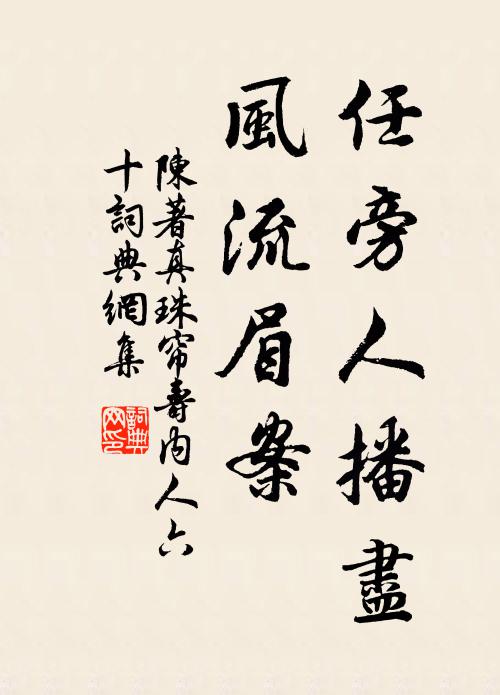 任旁人播盡
風流眉案
陳著真珠帘壽内人六
十詞典網集
詞典
网印